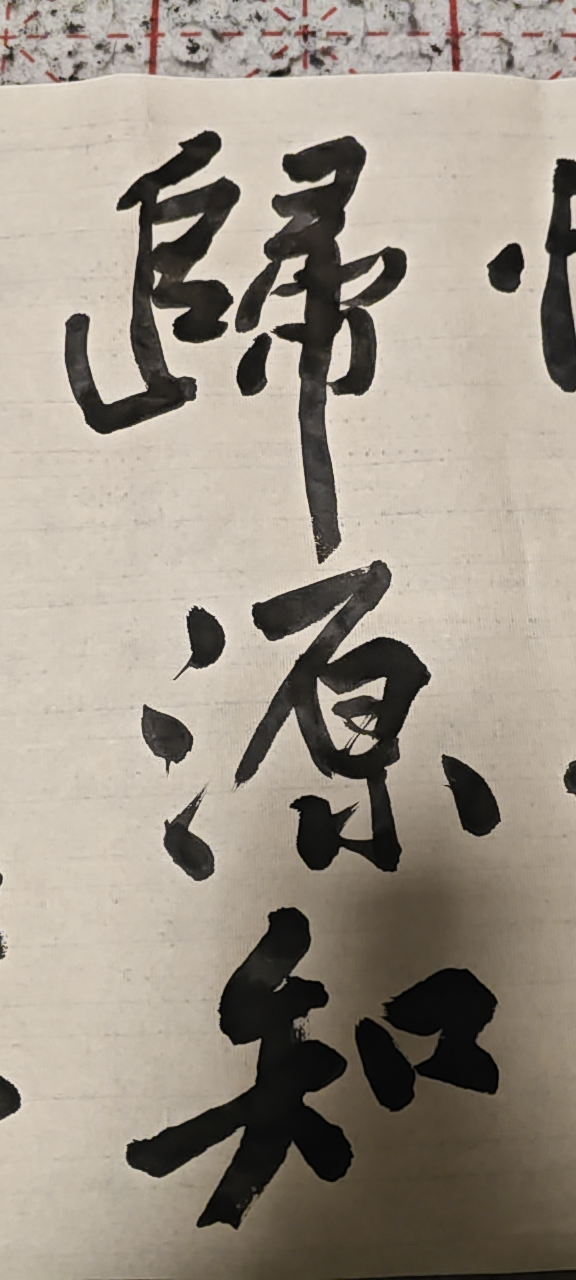 歸源知